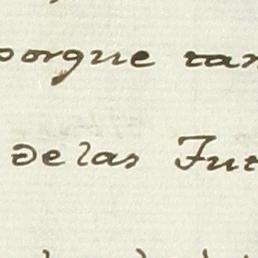 porque tan
de las Jut